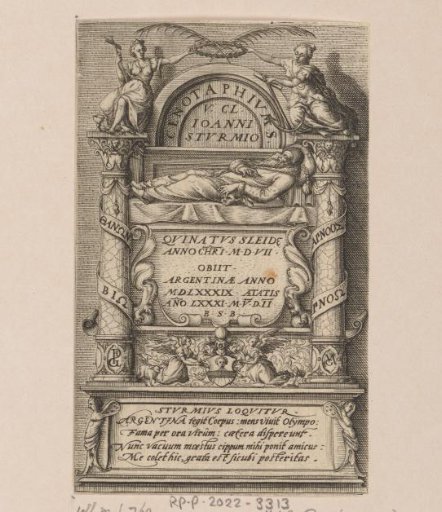 CENOTAPHIVM
V. CL.
IOANNI
STVRMIO
QVINATVS SLEIDÆ
ANNO CHRI · M·D·VII ·
OBIIT ·
ARGENTINÆ ANNO
M·D·LXXXIX ÆTATIS
AÑO LXXXI· M·V·D·II
B S B
ΘΑΝΩΝ
ΒΙΩ
STVRMIVS LOQVITVR ·
ARGENTINA tegit Corpus: mens vivit Olympo:
Fama per ora virûm: cætera dispereunt ·
Nunc vacuum mœstus cippum mihi ponit amicus ·
Me colet hic, grata est sicubi posteritas ·
RP-P-2022-3313